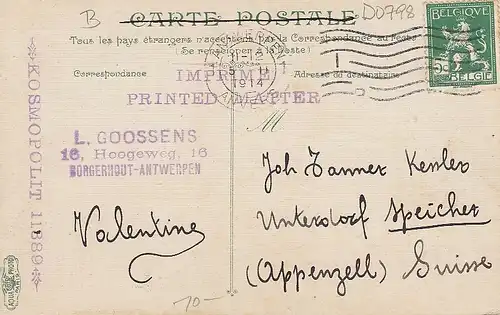 B
CARTE POSTALE
D0798
Tous les pays étrangers n'acceptent pas la Correspondance au Recto
(Se renseigner à la Poste)
Correspondance
Adresse du destinataire
IMPRIMÉ
PRINTED MATTER
11-12
1914
ANTWERPEN
BELGIQUE
5c
BELGIË
KOSMOPOLIT 11889
L. GOOSSENS
16, Hoogeweg, 16
BORGERHOUT-ANTWERPEN
M
Valentine
Joh Tanner Kessler
Unterdorf Speicher
(Appenzell) Suisse
70-
PARIS